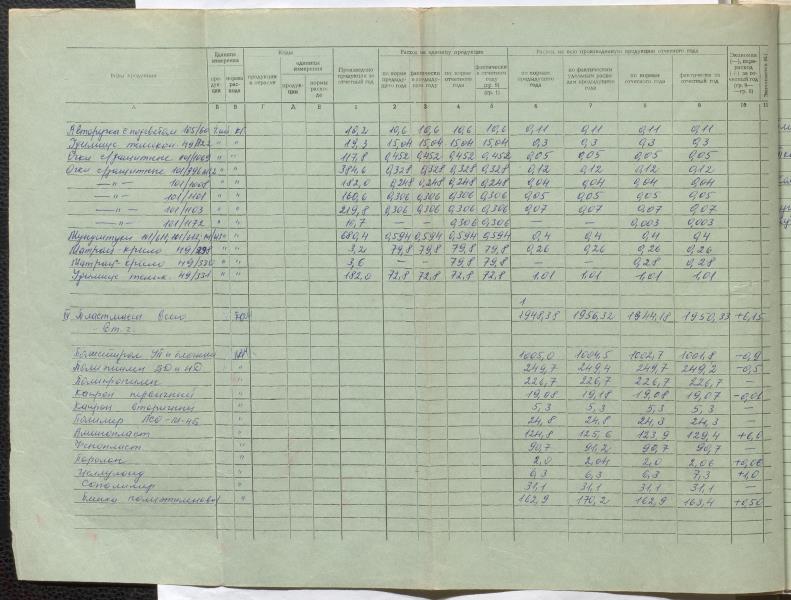 Виды продукции
Единицы измерения
про-дук-ции
нормы рас-хода
Коды
продукции в отрасли
единицы измерения
продук-ции
нормы расхо-да
Произведено продукции за отчетный год
Расход на единицу продукции
по норме предыду-щего года
фактически в предыду-щем году
по норме отчетного года
фактически в отчетном году (гр. 9) (гр. 1)
Расход на всю произведенную продукцию отчетного года
по нормам предыдущего года
по фактическим удельным расхо-дам предыдущего года
по нормам отчетного года
фактически за отчетный год
Экономия (—), пере-расход (+) за от-четный год (гр. 9— —гр. 8)
А Б В Г Д Е 1 2 3 4 5 6 7 8 9 10 11
Авторучка с подсветом 105/60 т.шт кг. 10,2 10,6 10,6 10,6 10,6 0,11 0,11 0,11 0,11
Удилище телескоп. 49/122 " " 19,3 15,04 15,04 15,04 15,04 0,3 0,3 0,3 0,3
Очки с/защитные 101/1069 " " 117,8 0,452 0,452 0,452 0,452 0,05 0,05 0,05 0,05
Очки с/защитные " " 384,6 0,328 0,328 0,328 0,328 0,12 0,12 0,12 0,12
— " — 101/1008 " " 182,0 0,248 0,248 0,248 0,248 0,04 0,04 0,04 0,04
— " — 101/1101 " " 160,6 0,306 0,306 0,306 0,306 0,05 0,05 0,05 0,05
— " — 101/1103 " " 219,8 0,306 0,306 0,306 0,306 0,07 0,07 0,07 0,07
— " — 101/1172 " " 10,7 — — 0,306 0,306 — — 0,003 0,003
Мундштуки " " 680,4 0,594 0,594 0,594 0,594 0,4 0,4 0,4 0,4
Матрац кресло 49/298 " " 3,2 79,8 79,8 79,8 79,8 0,26 0,26 0,26 0,26
Матрац-кресло 49/330 " " 3,6 — — 79,8 79,8 — — 0,28 0,28
Удилище телеск. 49/331 " " 182,0 72,8 72,8 72,8 72,8 1,01 1,01 1,01 1,01
Пластмассы всего тон 1948,38 1956,32 1944,18 1950,33 +6,15
в т. ч.
Полистирол УП и блочный 1005,0 1004,5 1002,7 1001,8 −0,9
Полиэтилен ВД и НД " 249,7 249,4 249,7 249,2 −0,5
Полипропилен " 226,7 226,7 226,7 226,7 —
Капрон первичный " 19,08 19,18 19,08 19,07 −0,01
Капрон вторичный " 5,3 5,3 5,3 5,3 —
Полимер " 24,8 24,8 24,3 24,3 —
Аминопласт " 124,8 125,6 123,9 129,4 +6,0
Фенопласт " 90,7 91,2 90,7 90,7 —
Поролон " 2,0 2,04 2,0 2,06 +0,06
Целлулоид " 6,3 6,3 6,3 7,3 +1,0
Сополимер " 31,1 31,1 31,1 31,1 —
Пленка полиэтиленовая " 162,9 170,2 162,9 163,4 +0,50